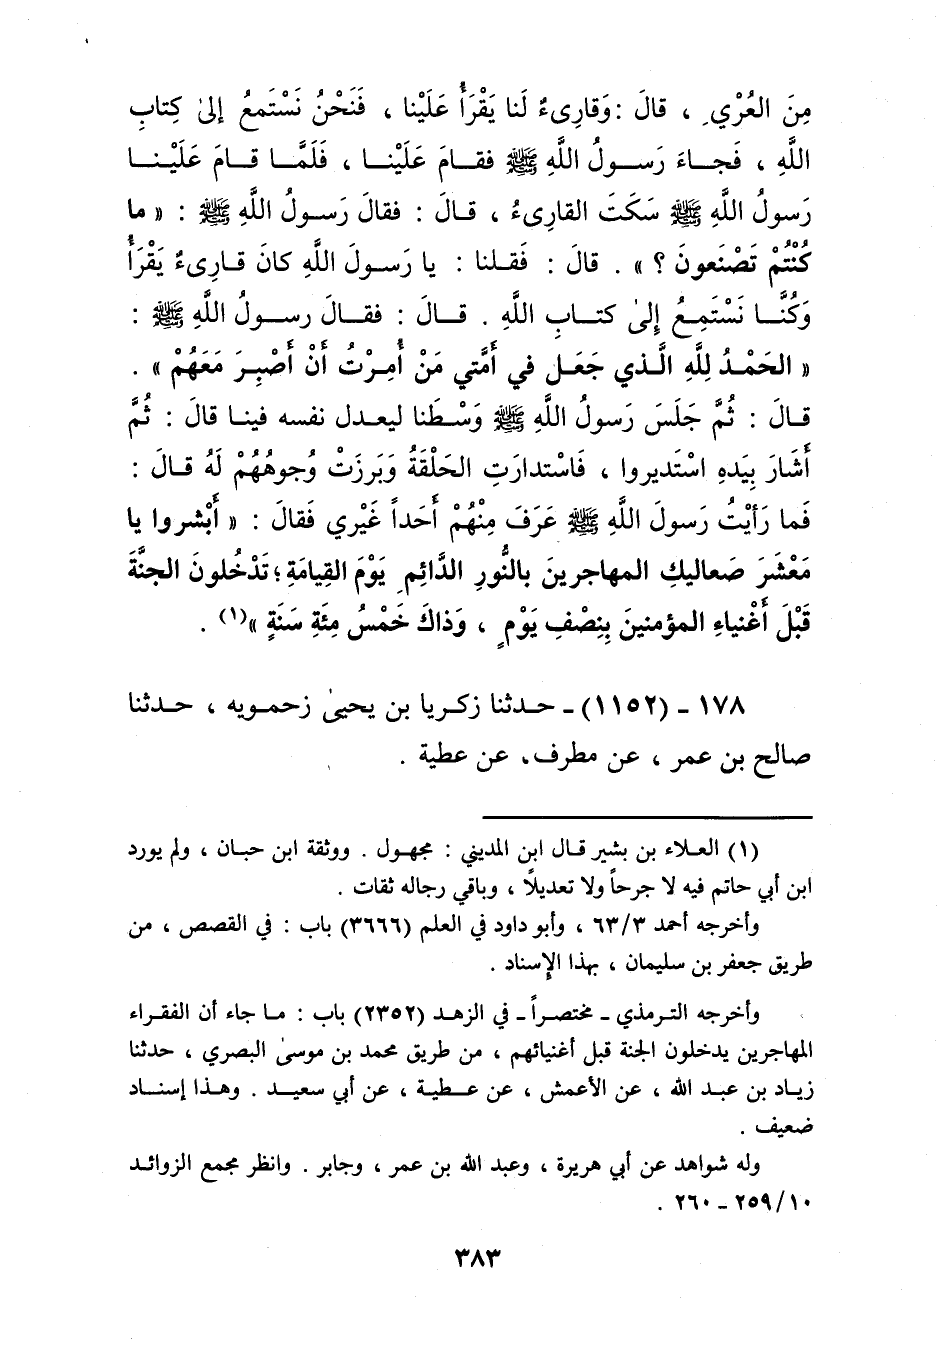 مِنَ العُرْيِ ، قالَ : وَقارِىءٌ لَنا يَقْرَأُ عَلَيْنا ، فَنَحْنُ نَسْتَمعُ إلىٰ كِتابِ
اللَّهِ ، فَجاءَ رَسولُ اللَّهِ ﷺ فقامَ عَلَيْنا ، فَلَمَّا قامَ عَلَيْنا
رَسولُ اللَّهِ ﷺ سَكَتَ القارِىءُ ، قالَ : فقالَ رَسولُ اللَّهِ ﷺ : « ما
كُنْتُمْ تَصْنَعونَ ؟ » . قالَ : فَقلنا : يا رَسولَ اللَّهِ كانَ قارِىءٌ يَقْرَأُ
وَكُنَّا نَسْتَمِعُ إِلىٰ كتابِ اللَّهِ . قالَ : فقالَ رسولُ اللَّهِ ﷺ :
« الحَمْدُ لِلَّهِ الَّذي جَعَل في أُمَّتي مَنْ أُمِرْتُ أَنْ أَصْبِرَ مَعَهُمْ » .
قالَ : ثُمَّ جَلَسَ رَسولُ اللَّهِ ﷺ وَسْطَنا ليعدل نفسه فينا قالَ : ثُمَّ
أَشَارَ بِيَدهِ اسْتَديروا ، فَاسْتدارَتِ الحَلْقَةُ وَبَرزَتْ وُجوهُهُمْ لَهُ قالَ :
فَما رَأيْتُ رَسولَ اللَّهِ ﷺ عَرَفَ مِنْهُمْ أَحَداً غَيْري فَقالَ : « أَبْشروا يا
مَعْشَرَ صَعاليكِ المهاجرينَ بالنُّورِ الدَّائِمِ يَوْمَ القِيامَةِ ؛ تَدْخُلونَ الجنَّةَ
قَبْلَ أَغْنياءِ المؤمنينَ بِنِصْفِ يَوْمٍ ، وَذاكَ خَمْسُ مِئَةِ سَنَةٍ »(١) .
١٧٨ ـ (١١٥٢) ـ حدثنا زكريا بن يحيىٰ زحمويه ، حدثنا
صالح بن عمر ، عن مطرف ، عن عطية .
(١) العلاء بن بشير قال ابن المديني : مجهول . ووثقة ابن حبان ، ولم يورد
ابن أبي حاتم فيه لا جرحاً ولا تعديلاً ، وباقي رجاله ثقات .
وأخرجه أحمد ٦٣/٣ ، وأبو داود في العلم (٣٦٦٦) باب : في القصص ، من
طريق جعفر بن سليمان ، بهذا الإسناد .
وأخرجه الترمذي ـ مختصراً ـ في الزهد (٢٣٥٢) باب : ما جاء أن الفقراء
المهاجرين يدخلون الجنة قبل أغنيائهم ، من طريق محمد بن موسىٰ البصري ، حدثنا
زياد بن عبد الله ، عن الأعمش ، عن عطية ، عن أبي سعيد . وهذا إسناد
ضعيف .
وله شواهد عن أبي هريرة ، وعبد الله بن عمر ، وجابر . وانظر مجمع الزوائد
٢٥٩/١٠ ـ ٢٦٠ .
٣٨٣